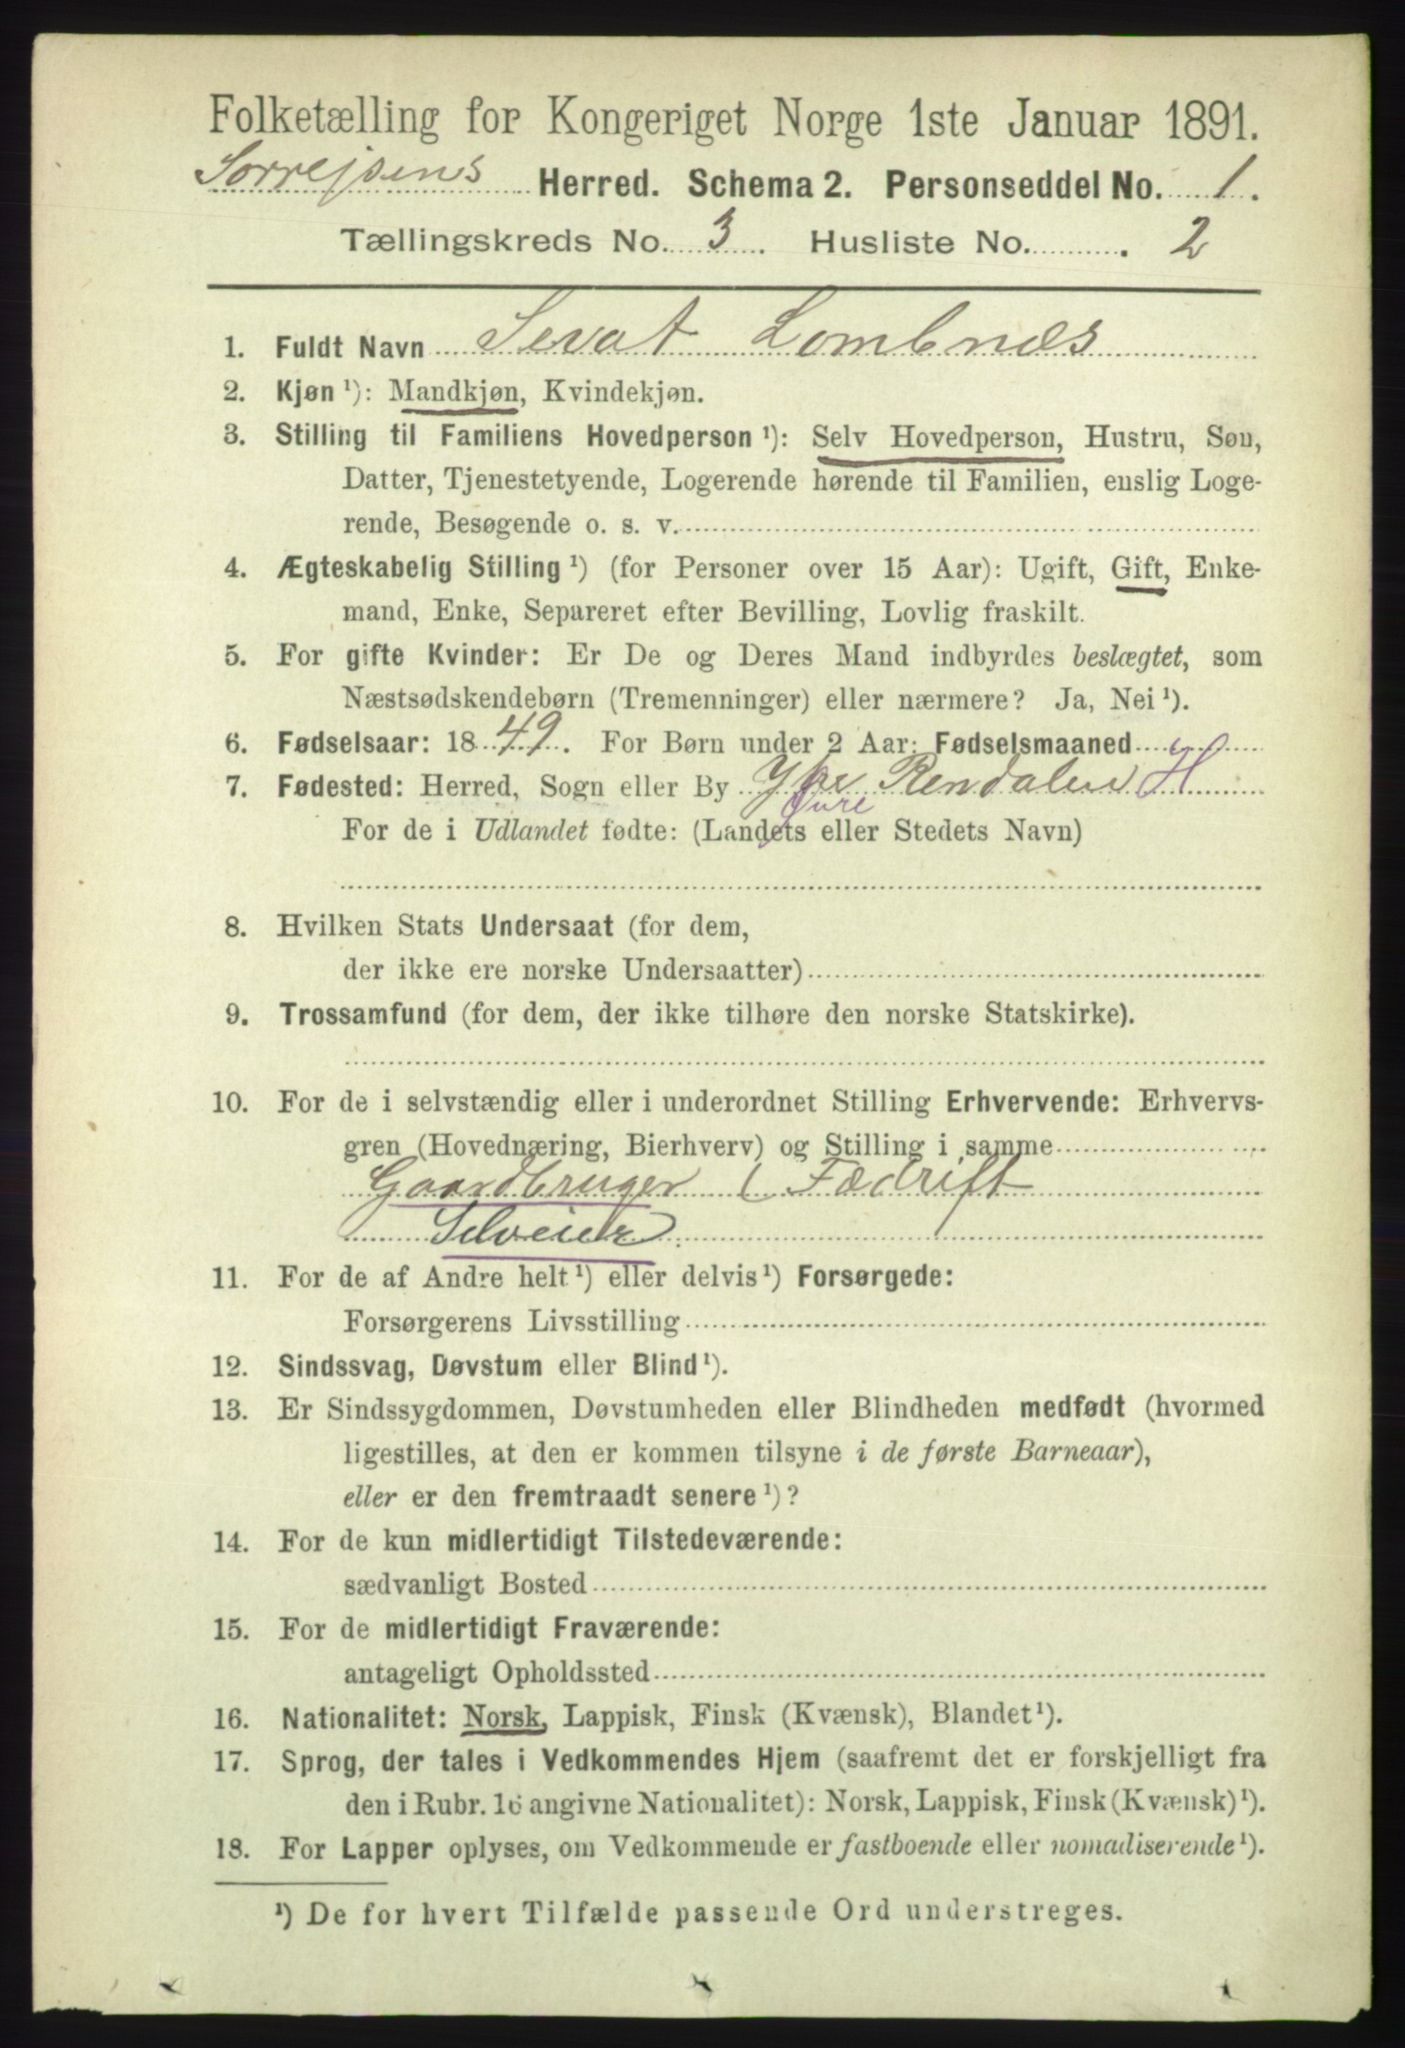 Folketælling for Kongeriget Norge 1ste Januar 1891.
Sorrejsens Herred. Schema 2. Personseddel No. 1.
Tællingskreds No. 3. Husliste No. 2
1. Fuldt Navn Sevat Lombnæs
2. Kjøn ¹): Mandkjøn, Kvindekjøn.
3. Stilling til Familiens Hovedperson ¹): Selv Hovedperson, Hustru, Søn,
Datter, Tjenestetyende, Logerende hørende til Familien, enslig Loge-
rende, Besøgende o. s. v.
4. Ægteskabelig Stilling ¹) (for Personer over 15 Aar): Ugift, Gift, Enke-
mand, Enke, Separeret efter Bevilling, Lovlig fraskilt.
5. For gifte Kvinder: Er De og Deres Mand indbyrdes beslægtet, som
Næstsødskendebørn (Tremenninger) eller nærmere? Ja, Nei ¹).
6. Fødselsaar: 1849. For Børn under 2 Aar: Fødselsmaaned
7. Fødested: Herred, Sogn eller By Rendalen H
Øvre
For de i Udlandet fødte: (Landets eller Stedets Navn)
8. Hvilken Stats Undersaat (for dem,
der ikke ere norske Undersaatter)
9. Trossamfund (for dem, der ikke tilhøre den norske Statskirke).
10. For de i selvstændig eller i underordnet Stilling Erhvervende: Erhvervs-
gren (Hovednæring, Bierhverv) og Stilling i samme
Gaardbruger ( Fædrift
Selveier
11. For de af Andre helt ¹) eller delvis ¹) Forsørgede:
Forsørgerens Livsstilling
12. Sindssvag, Døvstum eller Blind ¹).
13. Er Sindssygdommen, Døvstumheden eller Blindheden medfødt (hvormed
ligestilles, at den er kommen tilsyne i de første Barneaar),
eller er den fremtraadt senere ¹)?
14. For de kun midlertidigt Tilstedeværende:
sædvanligt Bosted
15. For de midlertidigt Fraværende:
antageligt Opholdssted
16. Nationalitet: Norsk, Lappisk, Finsk (Kvænsk), Blandet ¹).
17. Sprog, der tales i Vedkommendes Hjem (saafremt det er forskjelligt fra
den i Rubr. 16 angivne Nationalitet): Norsk, Lappisk, Finsk (Kvænsk) ¹).
18. For Lapper oplyses, om Vedkommende er fastboende eller nomadiserende ¹).
¹) De for hvert Tilfælde passende Ord understreges.